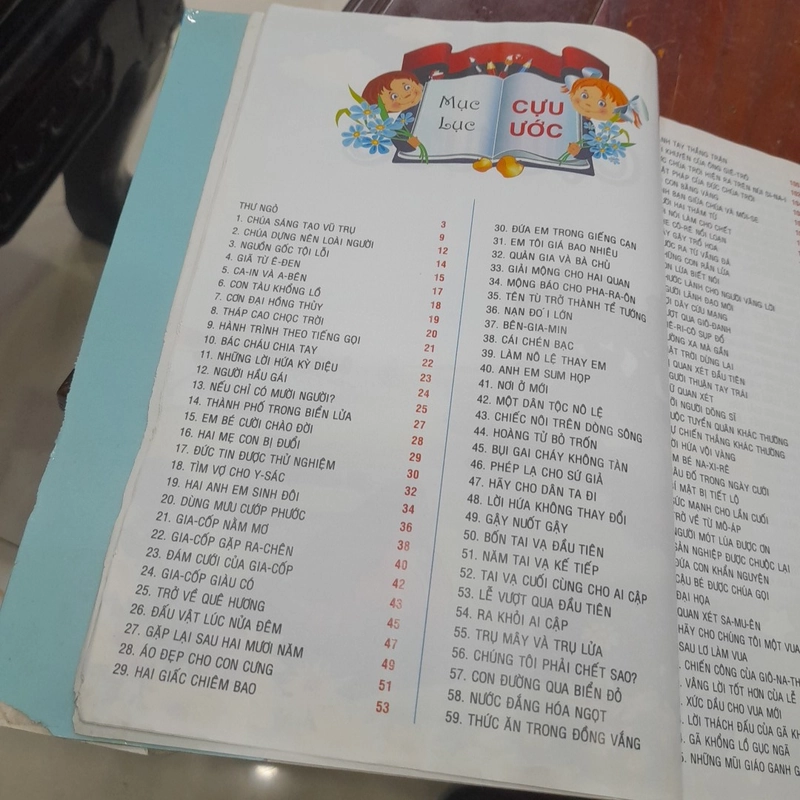 Mục
Lục
CỰU
ƯỚC
THƯ NGỎ 3
1. CHÚA SÁNG TẠO VŨ TRỤ 9
2. CHÚA DỰNG NÊN LOÀI NGƯỜI 12
3. NGUỒN GỐC TỘI LỖI 14
4. GIÃ TỪ Ê-ĐEN 15
5. CA-IN VÀ A-BÊN 17
6. CON TÀU KHỔNG LỒ 18
7. CƠN ĐẠI HỒNG THỦY 19
8. THÁP CAO CHỌC TRỜI 20
9. HÀNH TRÌNH THEO TIẾNG GỌI 21
10. BÁC CHÁU CHIA TAY 22
11. NHỮNG LỜI HỨA KỲ DIỆU 23
12. NGƯỜI HẦU GÁI 24
13. NẾU CHỈ CÓ MƯỜI NGƯỜI? 25
14. THÀNH PHỐ TRONG BIỂN LỬA 27
15. EM BÉ CƯỜI CHÀO ĐỜI 28
16. HAI MẸ CON BỊ ĐUỔI 29
17. ĐỨC TIN ĐƯỢC THỬ NGHIỆM 30
18. TÌM VỢ CHO Y-SÁC 32
19. HAI ANH EM SINH ĐÔI 34
20. DÙNG MƯU CƯỚP PHƯỚC 36
21. GIA-CỐP NẰM MƠ 38
22. GIA-CỐP GẶP RA-CHÊN 40
23. ĐÁM CƯỚI CỦA GIA-CỐP 42
24. GIA-CỐP GIÀU CÓ 43
25. TRỞ VỀ QUÊ HƯƠNG 45
26. ĐẤU VẬT LÚC NỬA ĐÊM 47
27. GẶP LẠI SAU HAI MƯƠI NĂM 49
28. ÁO ĐẸP CHO CON CƯNG 51
29. HAI GIẤC CHIÊM BAO 53
30. ĐỨA EM TRONG GIẾNG CẠN
31. EM TÔI GIÁ BAO NHIÊU
32. QUẢN GIA VÀ BÀ CHỦ
33. GIẢI MỘNG CHO HAI QUAN
34. MỘNG BÁO CHO PHA-RA-ÔN
35. TÊN TÙ TRỞ THÀNH TỂ TƯỚNG
36. NẠN ĐÓI LỚN
37. BÊN-GIA-MIN
38. CÁI CHÉN BẠC
39. LÀM NÔ LỆ THAY EM
40. ANH EM SUM HỌP
41. NƠI Ở MỚI
42. MỘT DÂN TỘC NÔ LỆ
43. CHIẾC NÔI TRÊN DÒNG SÔNG
44. HOÀNG TỬ BỎ TRỐN
45. BỤI GAI CHÁY KHÔNG TÀN
46. PHÉP LẠ CHO SỨ GIẢ
47. HÃY CHO DÂN TA ĐI
48. LỜI HỨA KHÔNG THAY ĐỔI
49. GẬY NUỐT GẬY
50. BỐN TAI VẠ ĐẦU TIÊN
51. NĂM TAI VẠ KẾ TIẾP
52. TAI VẠ CUỐI CÙNG CHO AI CẬP
53. LỄ VƯỢT QUA ĐẦU TIÊN
54. RA KHỎI AI CẬP
55. TRỤ MÂY VÀ TRỤ LỬA
56. CHÚNG TÔI PHẢI CHẾT SAO?
57. CON ĐƯỜNG QUA BIỂN ĐỎ
58. NƯỚC ĐẮNG HÓA NGỌT
59. THỨC ĂN TRONG ĐỒNG VẮNG
TAY THẮNG TRẬN
KHUYÊN CỦA ÔNG GIÊ-TRÔ
CHÚA TRỜI HIỆN RA TRÊN NÚI SI-NA-I
PHÁP CỦA ĐỨC CHÚA TRỜI
CON BẰNG VÀNG
BẠN GIỮA CHÚA VÀ MÔI-SE
HAI THÁM TỬ
NÓI LÀM CHO CHẾT
CÔ-RÊ NỔI LOẠN
GẬY TRỔ HOA
RA TỪ VẦNG ĐÁ
CON RẮN LỬA
LỪA BIẾT NÓI
LÀNH CHO NGƯỜI VÂNG LỜI
LÃNH ĐẠO MỚI
DÂY CỨU MẠNG
QUA GIÔ-ĐANH
SỤP ĐỔ
XA MÀ GẦN
TRỜI DỪNG LẠI
QUAN XÉT ĐẦU TIÊN
THUẬN TAY TRÁI
QUAN XÉT
NGƯỜI DÒNG SĨ
TUYỂN QUÂN KHÁC THƯỜNG
CHIẾN THẮNG KHÁC THƯỜNG
HỨA VỘI VÀNG
BÉ NA-XI-RÊ
ĐỐ TRONG NGÀY CƯỚI
MẬT BỊ TIẾT LỘ
MẠNH CHO LẦN CUỐI
VỀ TỪ MÔ-ÁP
MÓT LÚA ĐƯỢC ƠN
NGHIỆP ĐƯỢC CHUỘC LẠI
CON KHẨN NGUYỆN
BÉ ĐƯỢC CHÚA GỌI
ĐẠI HỌA
QUAN XÉT SA-MU-ÊN
HÃY CHO CHÚNG TÔI MỘT VUA
SAU LƠ LÀM VUA
CHIẾN CÔNG CỦA GIÔ-NA-TH
VÂNG LỜI TỐT HƠN CỦA LỄ
XỨC DẦU CHO VUA MỚI
LỜI THÁCH ĐẤU CỦA GÃ KH
GÃ KHỔNG LỒ GỤC NGÃ
NHỮNG MŨI GIÁO GANH G